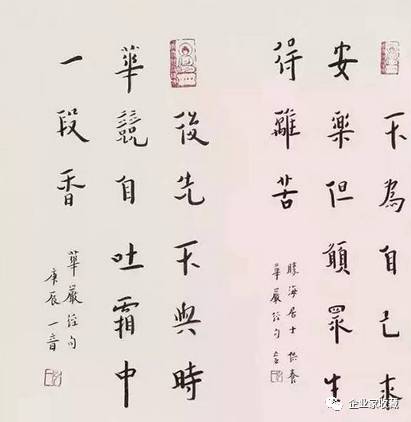 不為自己求
安樂但願眾生
得離苦
勝海居士供養
華嚴經句
後先不與時
華競自吐霜中
一段香
華嚴經句
庚辰一音
企业家收藏